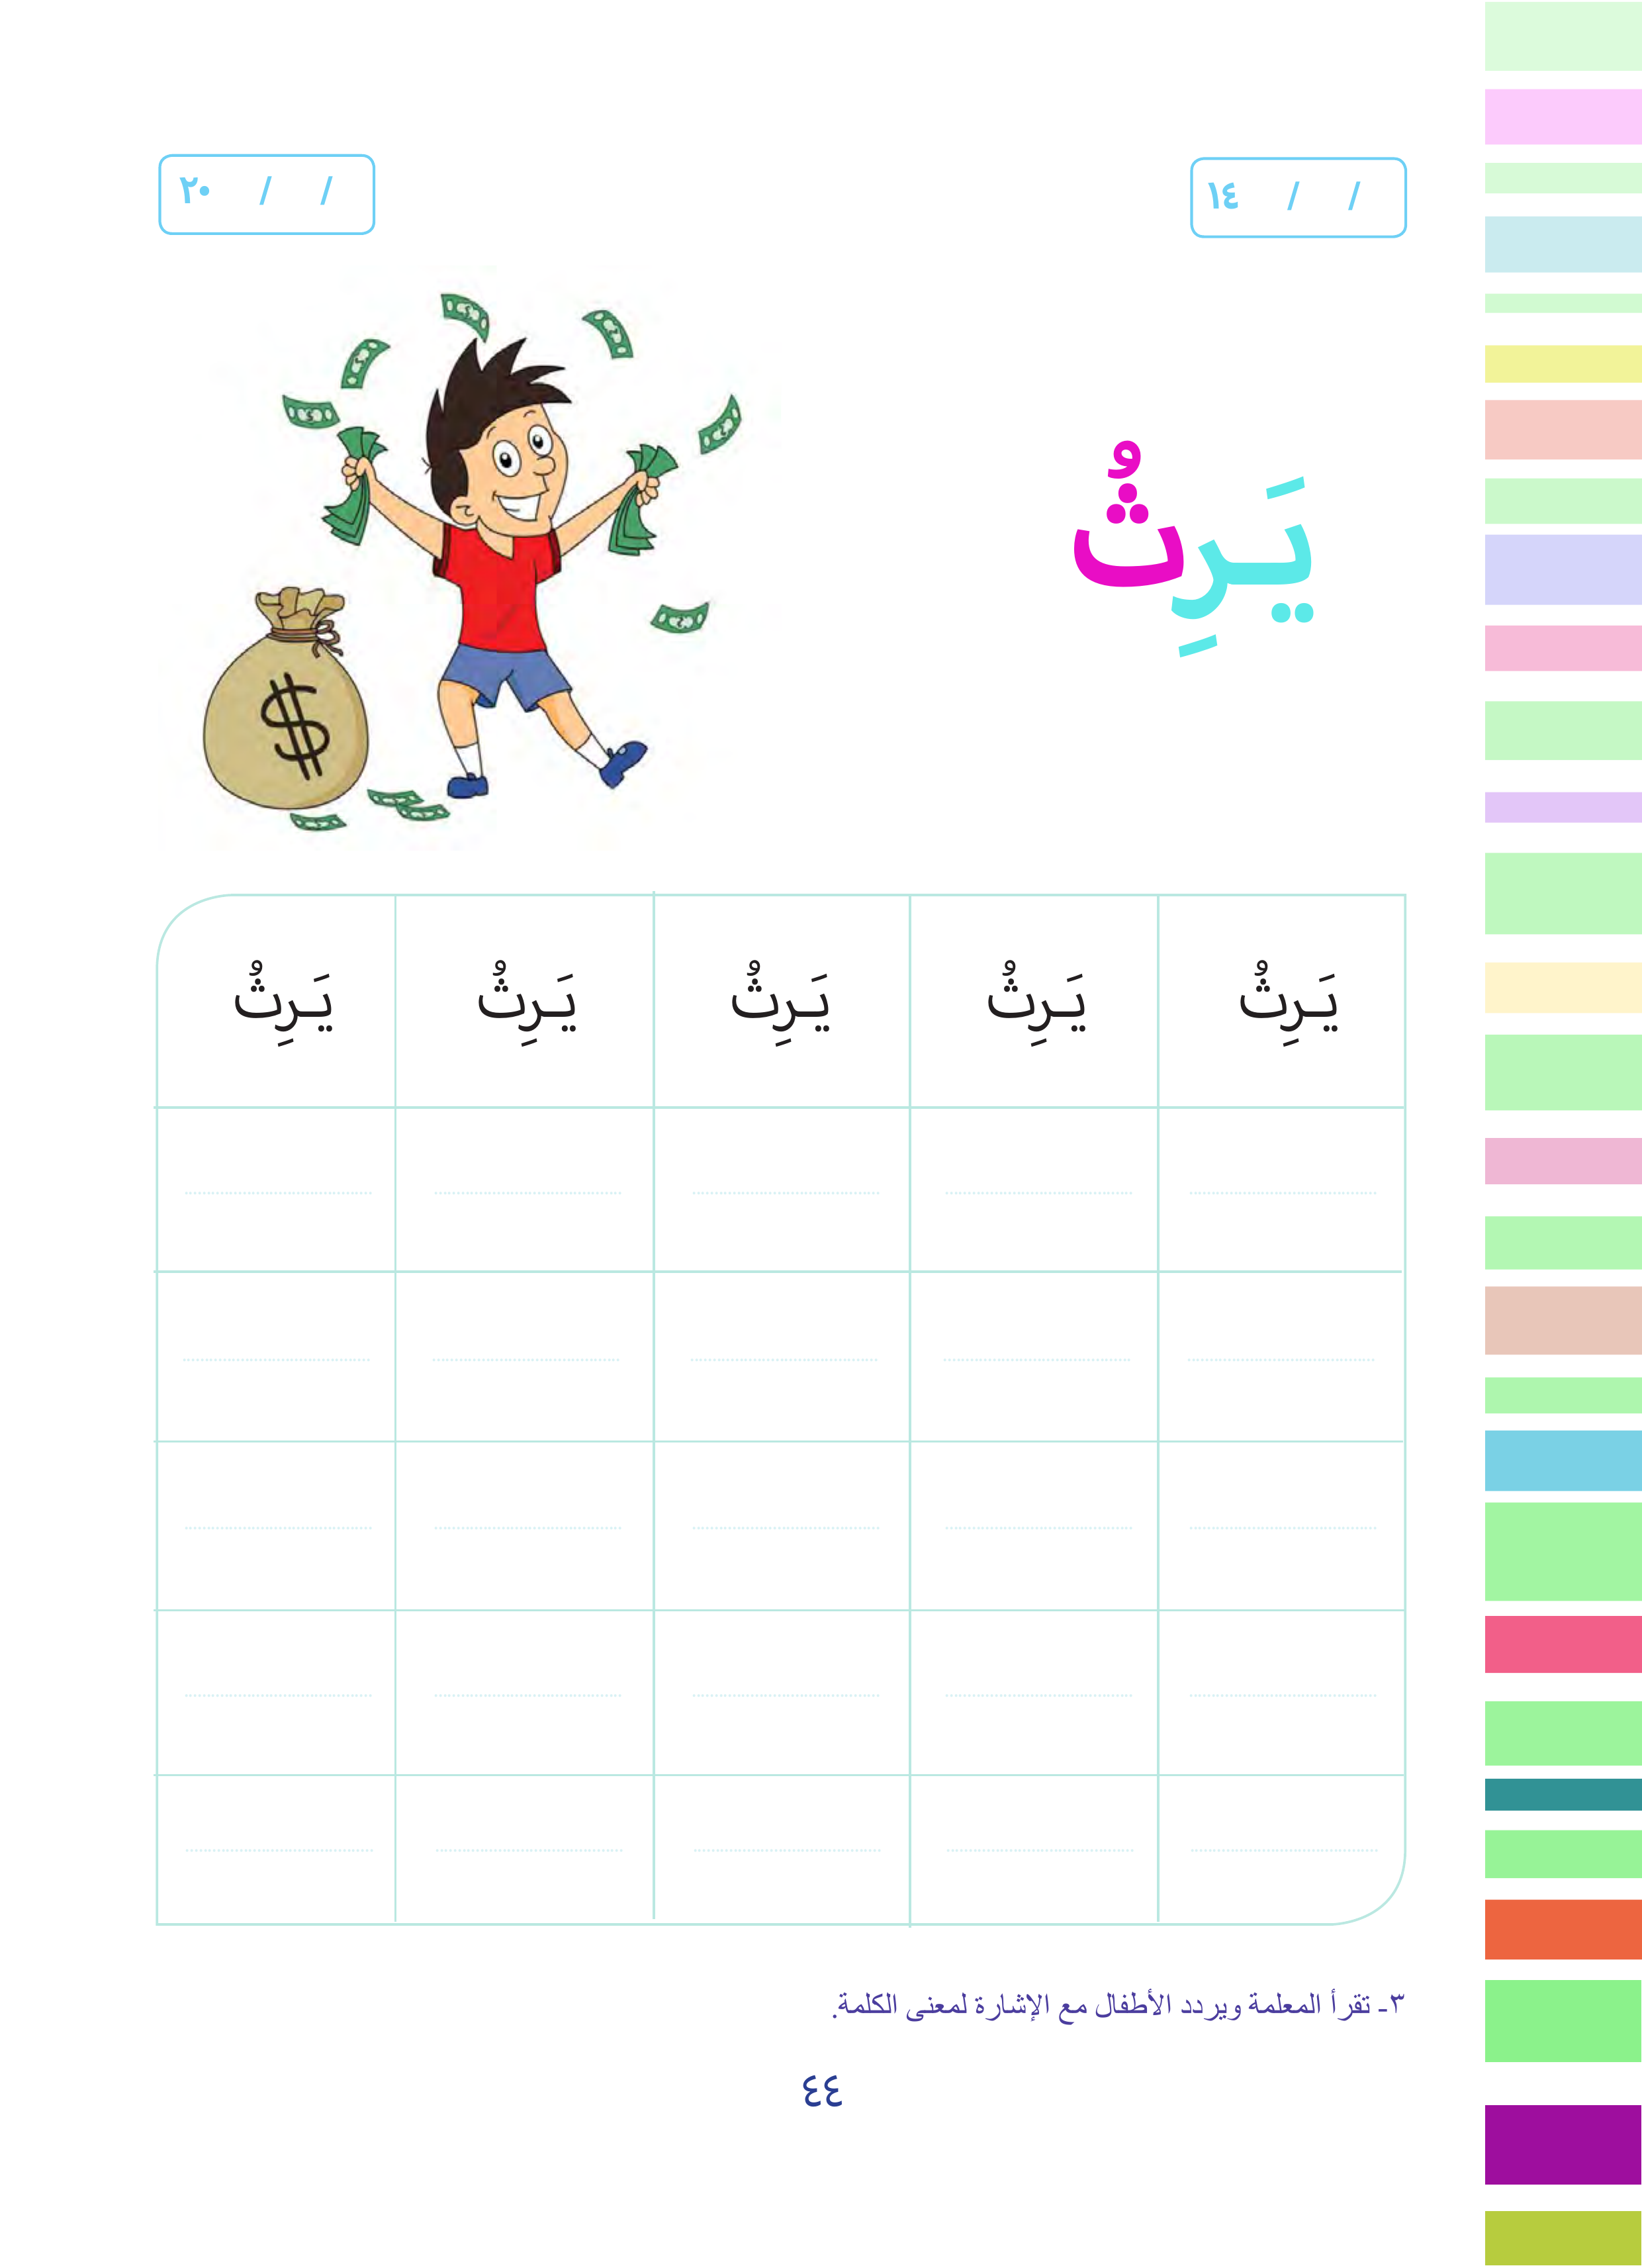 / / ١٤
/ / ٢٠
يَـرِثُ
$
يَـرِثُ يَـرِثُ يَـرِثُ يَـرِثُ يَـرِثُ
٣- تقرأ المعلمة ويردد الأطفال مع الإشارة لمعنى الكلمة.
٤٤